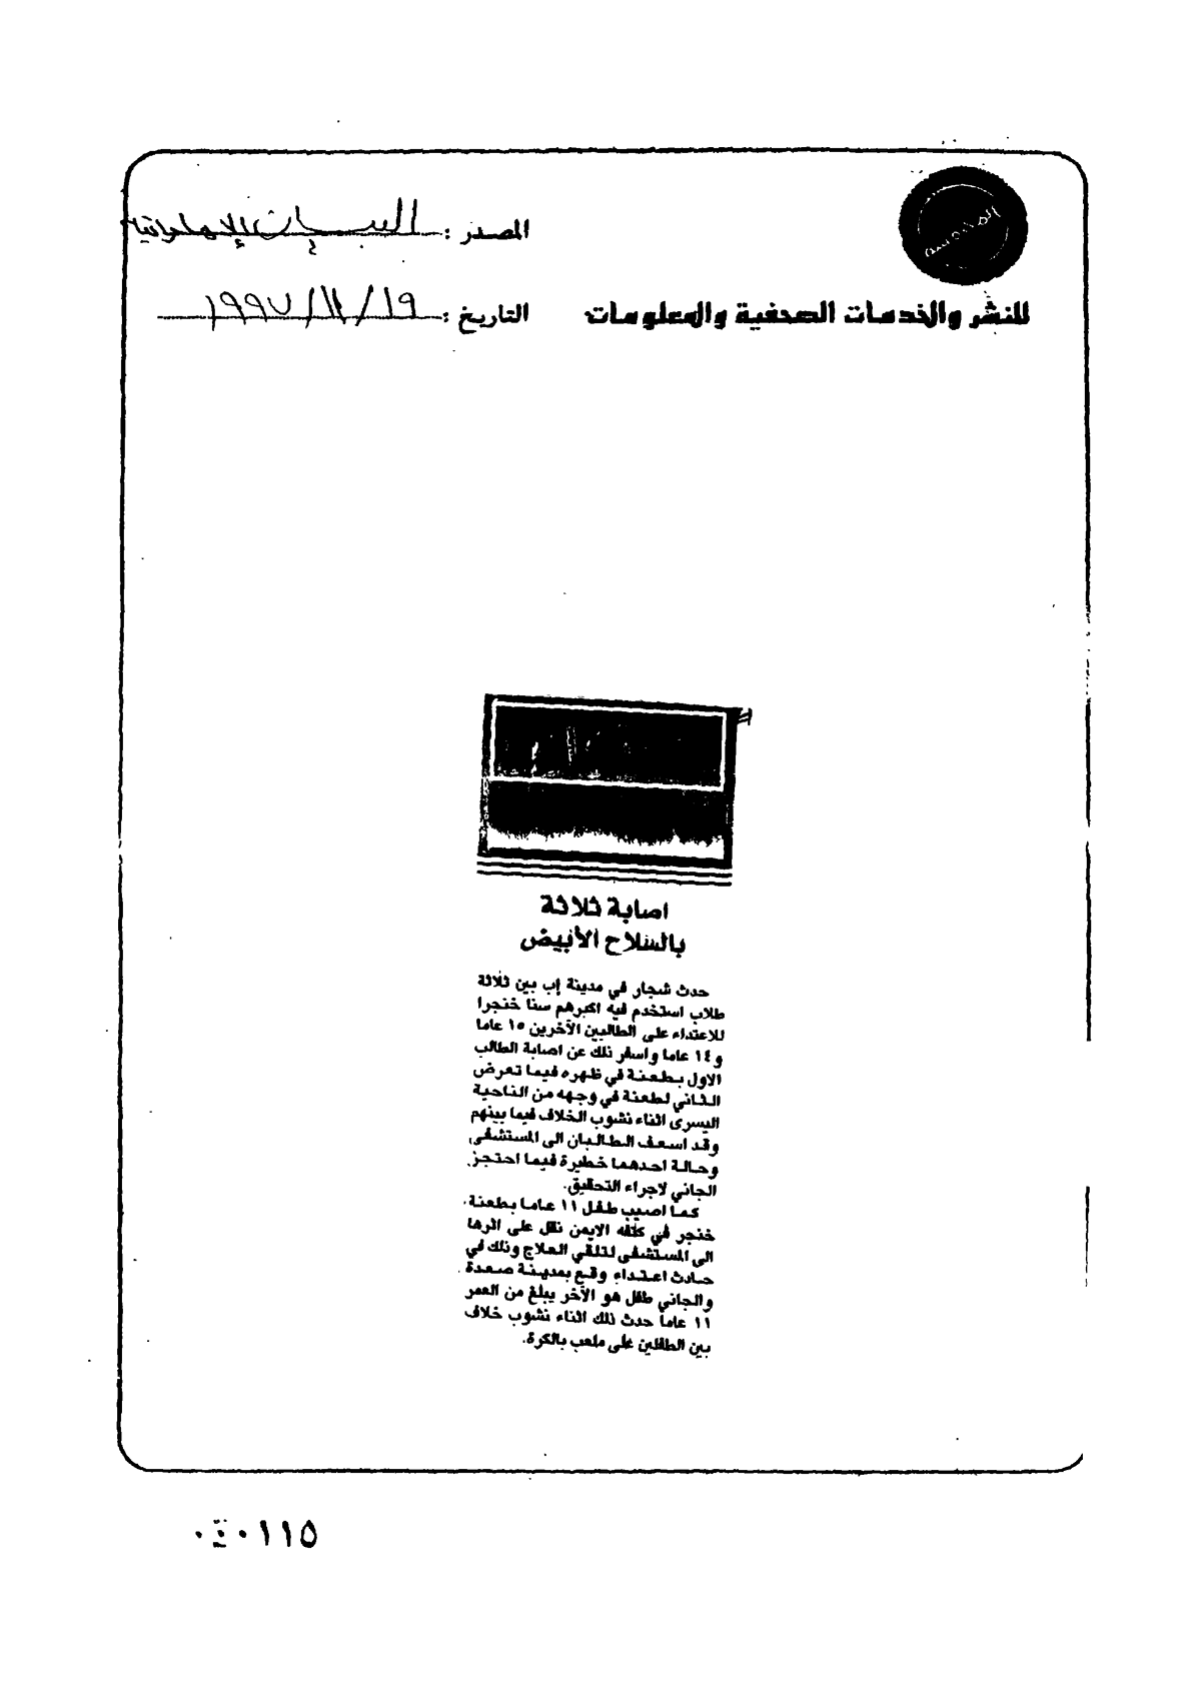 المصدر : البيان الإماراتية
للنشر والخدمات الصحفية والمعلومات
التاريخ : ١٩ / ١١ / ١٩٩٧
اصابة ثلاثة
بالسلاح الأبيض
حدث شجار في مدينة إب بين ثلاثة
طلاب استخدم فيه اكبرهم سنا خنجرا
للاعتداء على الطالبين الآخرين ١٥ عاما
و١٤ عاما واسفر ذلك عن اصابة الطالب
الاول بطعنة في ظهره فيما تعرض
الثاني لطعنة في وجهه من الناحية
اليسرى اثناء نشوب الخلاف فيما بينهم
وقد اسعف الطالبان الى المستشفى
وحالة احدهما خطيرة فيما احتجز
الجاني لاجراء التحقيق.
كما اصيب طفل ١١ عاما بطعنة
خنجر في كتفه الايمن نقل على اثرها
الى المستشفى لتلقي العلاج وذلك في
حادث اعتداء وقع بمدينة صعدة
والجاني طفل هو الآخر يبلغ من العمر
١١ عاما حدث ذلك اثناء نشوب خلاف
بين الطفلين على ملعب بالكرة.